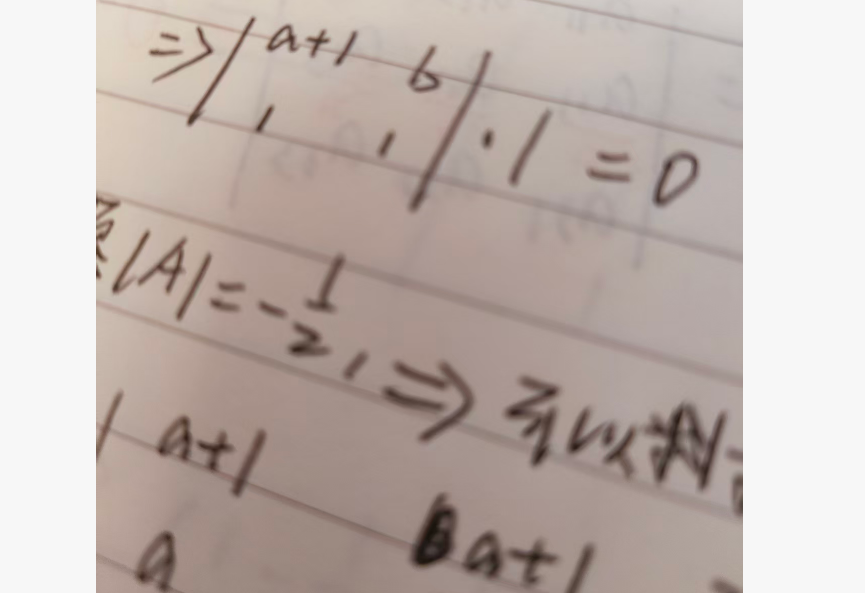 ⇒ | a+1 b |
| 1 1 | · 1 = 0
|A| = -1/2, ⇒ 可以判
| a+1
a a+1